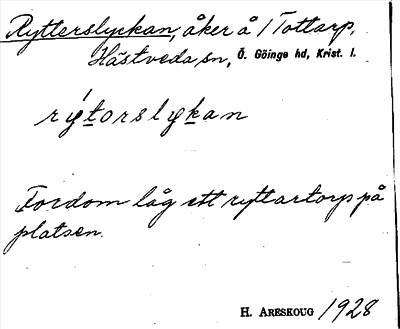 Rytterslyckan, åker å 1 Tottarp,
Hästveda sn, Ö. Göinge hd, Krist. l.
rýtorslykan
Fordom låg ett ryttartorp på
platsen.
H. Areskoug 1928